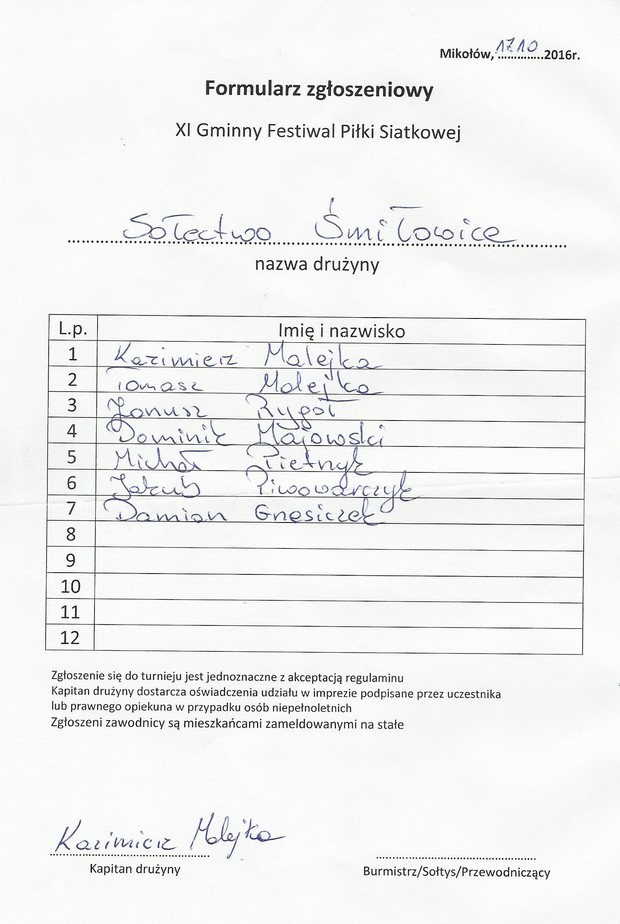 Mikołów, 17.10 2016r.
Formularz zgłoszeniowy
XI Gminny Festiwal Piłki Siatkowej
Sołectwo Śmiłowice
nazwa drużyny
L.p. Imię i nazwisko
1 Kazimierz Malejka
2 Tomasz Malejka
3 Janusz Rygoł
4 Dominik Majowski
5 Michał Pietnyk
6 Jakub Piwowarczyk
7 Damian Gnesiczek
8
9
10
11
12
Zgłoszenie się do turnieju jest jednoznaczne z akceptacją regulaminu
Kapitan drużyny dostarcza oświadczenia udziału w imprezie podpisane przez uczestnika
lub prawnego opiekuna w przypadku osób niepełnoletnich
Zgłoszeni zawodnicy są mieszkańcami zameldowanymi na stałe
Kazimierz Malejka
Kapitan drużyny
Burmistrz/Sołtys/Przewodniczący